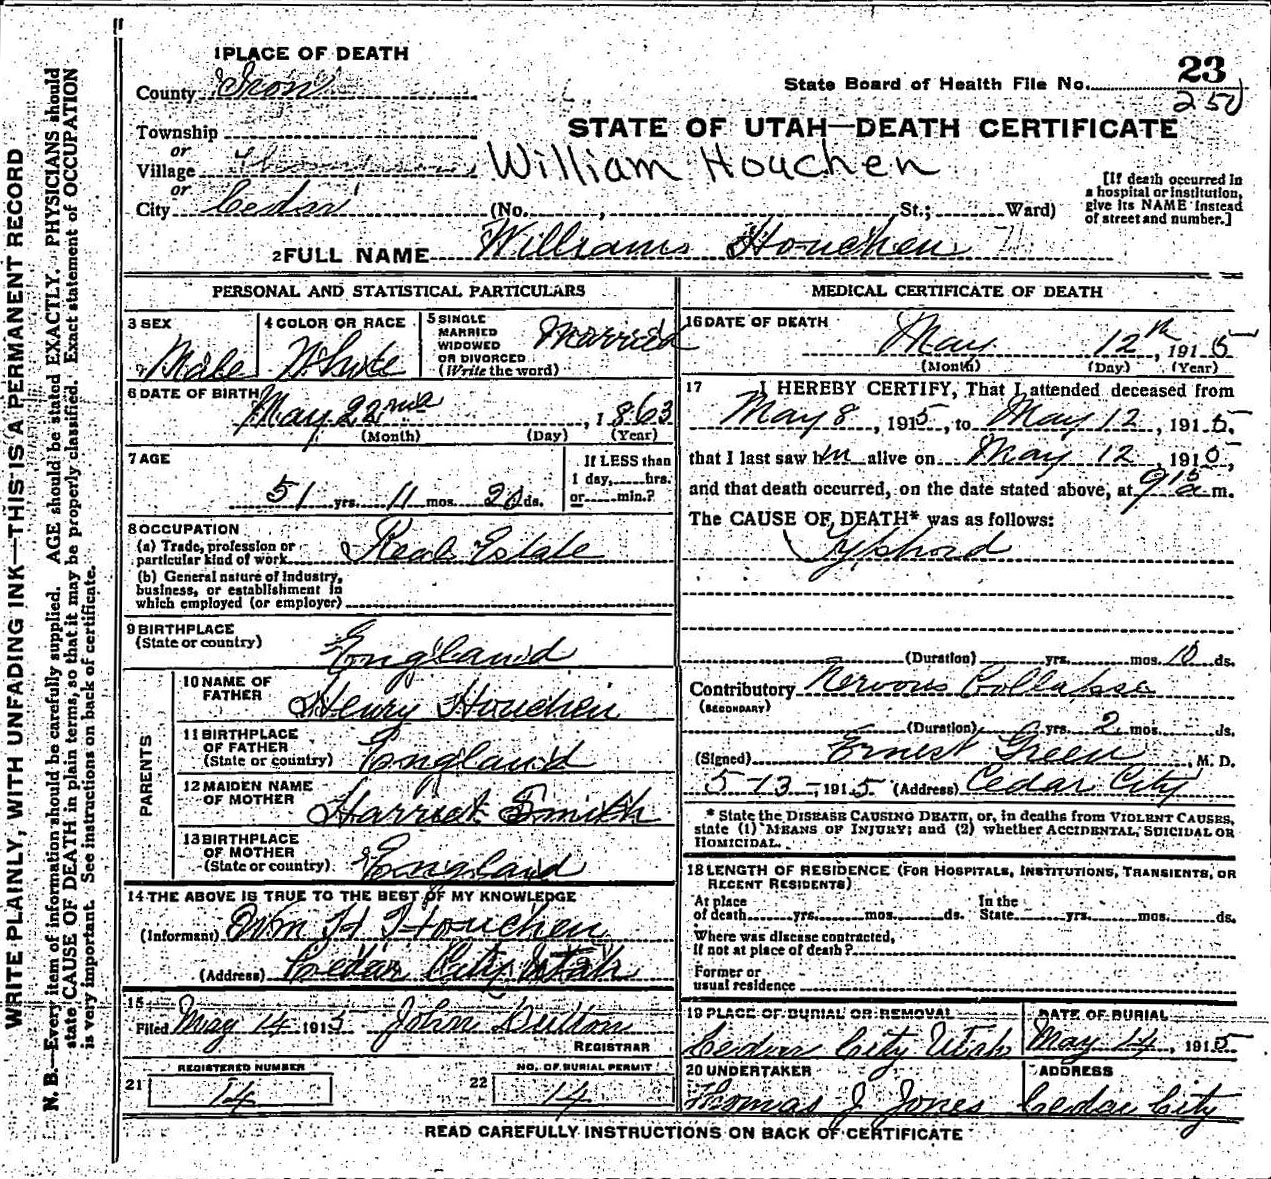 WRITE PLAINLY, WITH UNFADING INK—THIS IS A PERMANENT RECORD
N. B.—Every item of information should be carefully supplied. AGE should be stated EXACTLY. PHYSICIANS should
state CAUSE OF DEATH in plain terms, so that it may be properly classified. Exact statement of OCCUPATION
is very important. See instructions on back of certificate.
1 PLACE OF DEATH
County Iron
Township
or
Village
or
City Cedar
State Board of Health File No. 23
250
STATE OF UTAH—DEATH CERTIFICATE
William Houchen
[If death occurred in
a hospital or institution,
give its NAME instead
of street and number.]
(No. , St.; Ward)
2 FULL NAME William Houchen
PERSONAL AND STATISTICAL PARTICULARS
3 SEX
Male
4 COLOR OR RACE
White
5 SINGLE
MARRIED
WIDOWED
OR DIVORCED
(Write the word)
Married
6 DATE OF BIRTH
May 22nd, 1863
(Month) (Day) (Year)
7 AGE
51 yrs. 11 mos. 20 ds.
If LESS than
1 day, hrs.
or min.?
8 OCCUPATION
(a) Trade, profession or
particular kind of work Real Estate
(b) General nature of Industry,
business, or establishment in
which employed (or employer)
9 BIRTHPLACE
(State or country)
England
PARENTS
10 NAME OF
FATHER
Henry Houchen
11 BIRTHPLACE
OF FATHER
(State or country) England
12 MAIDEN NAME
OF MOTHER
Harriet Smith
13 BIRTHPLACE
OF MOTHER
(State or country) England
14 THE ABOVE IS TRUE TO THE BEST OF MY KNOWLEDGE
(Informant) Wm H Houchen
(Address) Cedar City Utah
15
Filed May 14 1915 John
REGISTRAR
21
REGISTERED NUMBER
14
22
NO. OF BURIAL PERMIT
14
MEDICAL CERTIFICATE OF DEATH
16 DATE OF DEATH
May 12th, 1915
(Month) (Day) (Year)
17 I HEREBY CERTIFY, That I attended deceased from
May 8, 1915, to May 12, 1915,
that I last saw him alive on May 12, 1915,
and that death occurred, on the date stated above, at 9 15 a m.
The CAUSE OF DEATH* was as follows:
Typhoid
(Duration) yrs. mos. 10 ds.
Contributory Nervous Collapse
(SECONDARY)
(Duration) yrs. 2 mos. ds.
(Signed) Ernest Green, M. D.
5-13-, 1915 (Address) Cedar City
* State the DISEASE CAUSING DEATH, or, in deaths from VIOLENT CAUSES,
state (1) MEANS OF INJURY; and (2) whether ACCIDENTAL, SUICIDAL OR
HOMICIDAL.
18 LENGTH OF RESIDENCE (FOR HOSPITALS, INSTITUTIONS, TRANSIENTS, OR
RECENT RESIDENTS)
At place
of death yrs. mos. ds.
In the
State yrs. mos. ds.
Where was disease contracted,
if not at place of death?
Former or
usual residence
19 PLACE OF BURIAL OR REMOVAL
Cedar City Utah
DATE OF BURIAL
May 14, 1915
20 UNDERTAKER
Thomas J Jones
ADDRESS
Cedar City
READ CAREFULLY INSTRUCTIONS ON BACK OF CERTIFICATE